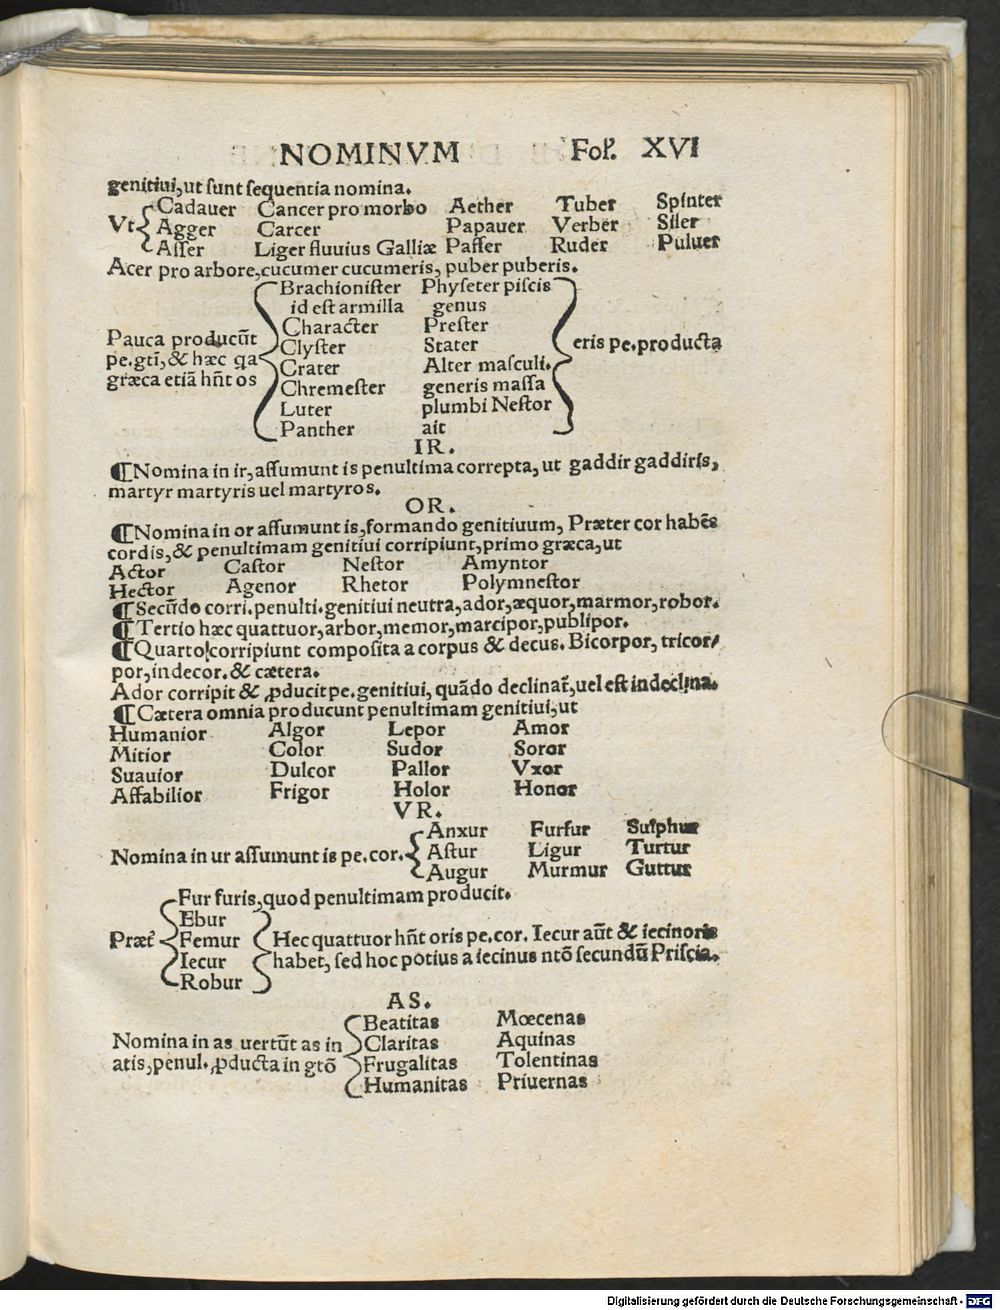 NOMINVM Fol. XVI
genitiui,ut ſunt ſequentia nomina.
Cadauer Cancer pro morbo Aether Tuber Spinter
Vt Agger Carcer Papauer Verber Siler
Aſſer Liger fluuius Galliæ Paſſer Ruder Puluer
Acer pro arbore,cucumer cucumeris, puber puberis.
Brachioniſter Phyſeter piſcis
id eſt armilla genus
Character Preſter
Pauca producūt Clyſter Stater eris pe.producta
pe.gtī,& hæc qa Crater Alter maſculi.
græca etiā hñt os Chremeſter generis maſſa
Luter plumbi Neſtor
Panther ait
IR.
¶Nomina in ir,aſſumunt is penultima correpta,ut gaddir gaddiris,
martyr martyris uel martyros.
OR.
¶Nomina in or aſſumunt is,formando genitiuum, Præter cor habēs
cordis,& penultimam genitiui corripiunt,primo græca,ut
Actor Caſtor Neſtor Amyntor
Hector Agenor Rhetor Polymneſtor
¶Secūdo corri.penulti.genitiui neutra,ador,æquor,marmor,robor.
¶Tertio hæc quattuor,arbor,memor,marcipor,publipor.
¶Quarto corripiunt compoſita a corpus & decus. Bicorpor, tricor/
por,indecor.& cætera.
Ador corripit & ꝓducit pe.genitiui, quādo declinat̄,uel eſt indeclina.
¶Cætera omnia producunt penultimam genitiui,ut
Humanior Algor Lepor Amor
Mitior Color Sudor Soror
Suauior Dulcor Pallor Vxor
Affabilior Frigor Holor Honor
VR.
Anxur Furfur Sulphur
Nomina in ur aſſumunt is pe.cor. Aſtur Ligur Turtur
Augur Murmur Guttur
Fur furis,quod penultimam producit.
Ebur
Præt̄ Femur Hec quattuor hñt oris pe.cor. Iecur aūt & iecinoris
Iecur habet, ſed hoc potius a iecinus ntō ſecundū Priſcia.
Robur
AS.
Beatitas Mœcenas
Nomina in as uertūt as in Claritas Aquinas
atis,penul.ꝓducta in gtō Frugalitas Tolentinas
Humanitas Priuernas
Digitalisierung gefördert durch die Deutsche Forschungsgemeinschaft - DFG